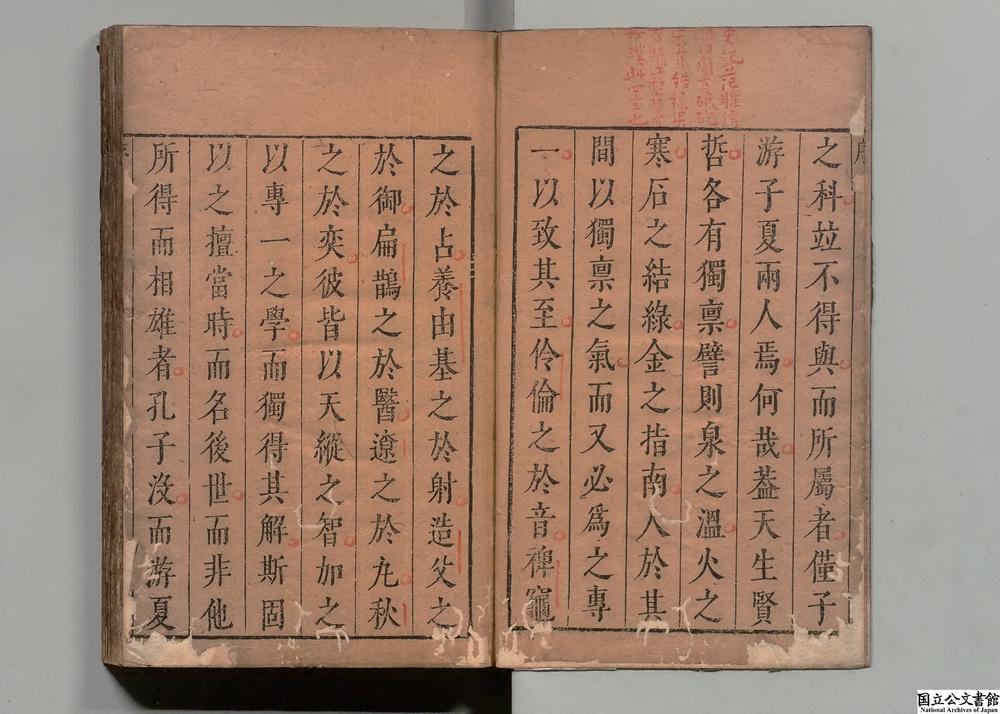 序
之科竝不得與而所屬者僅子
游子夏兩人焉何哉葢天生賢
哲各有獨禀譬則泉之溫火之
寒石之結綠金之指南人於其
間以獨禀之氣而又必爲之專
一以致其至伶倫之於音禆竈
之於占養由基之於射造父之
於御扁鵲之於醫遼之於九秋
之於奕彼皆以天縱之智加之
以專一之學而獨得其解斯固
以之擅當時而名後世而非他
所得而相雄者孔子沒而游夏
国立公文書館
National Archives of Japan